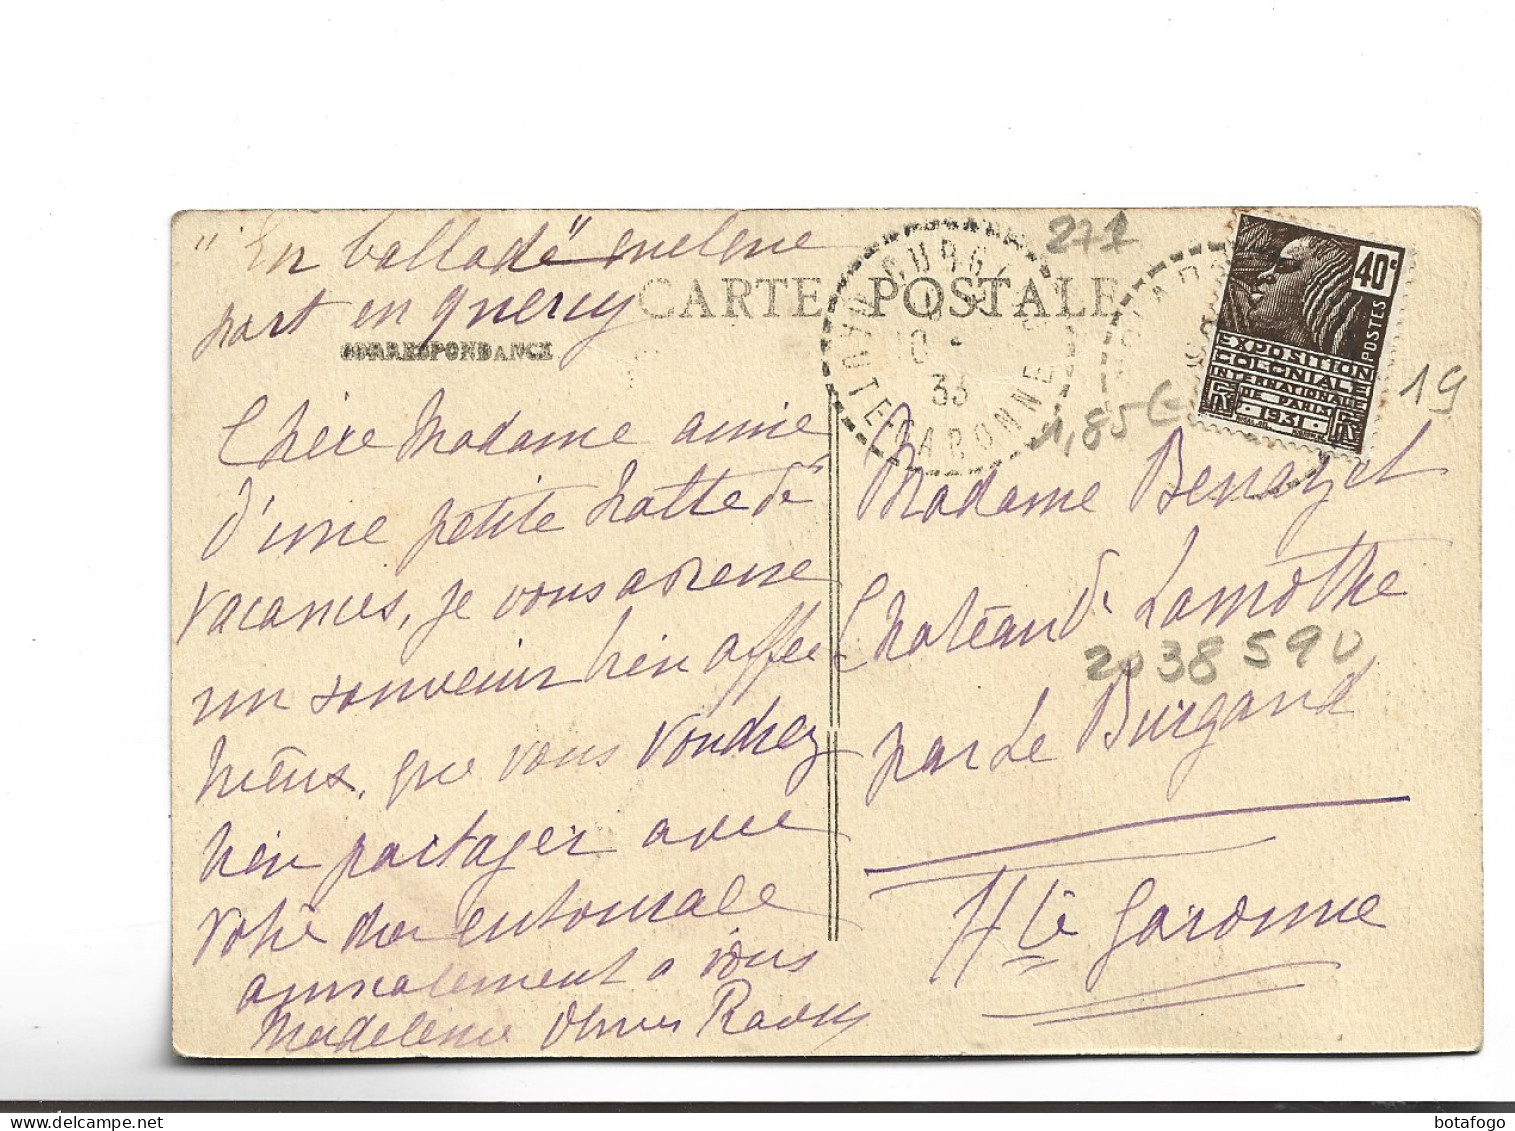 "En ballade"
part en quercy
CARTE POSTALE
CORRESPONDANCE
Chère Madame amie
d'une petite halte de
vacances, je vous adresse
un souvenir bien affec
que vous voudrez
bien partager avec
votre entourage
amicalement a vous
Madeleine
HAUTE-GARONNE
33
271
1,85€
19
40c
POSTES
EXPOSITION
COLONIALE
INTERNATIONALE
DE PARIS
1931
Madame Benazet
Château de Lamothe
2038590
par Le Burgaud
Hte Garonne
botafogo